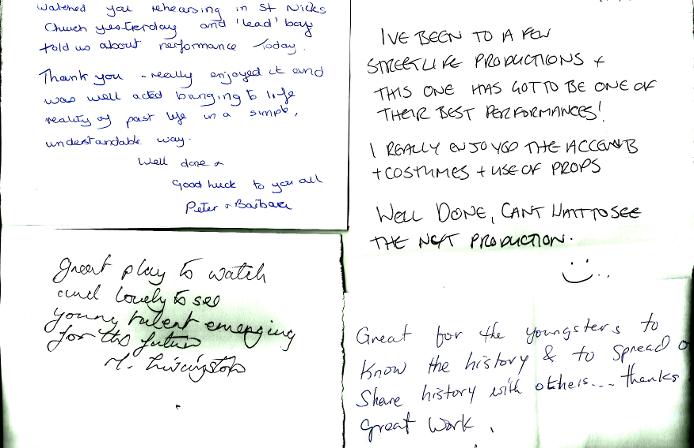 watched you rehearsing in St Nicks
Church yesterday and 'lead' boy
told us about performance today.
Thank you - really enjoyed it and
was well acted bringing to life
reality of past life in a simple,
understandable way.
Well done &
Good luck to you all
Peter & Barbara
I'VE BEEN TO A FEW
STREETLIFE PRODUCTIONS +
THIS ONE HAS GOT TO BE ONE OF
THEIR BEST PERFORMANCES!
I REALLY ENJOYED THE ACCENTS
+ COSTUMES + USE OF PROPS
WELL DONE, CANT WAIT TO SEE
THE NEXT PRODUCTION.
great play to watch
and lovely to see
young talent emerging
for the future
M. Livingston
Great for the youngsters to
know the history & to spread
Share history with others... thanks
great work.